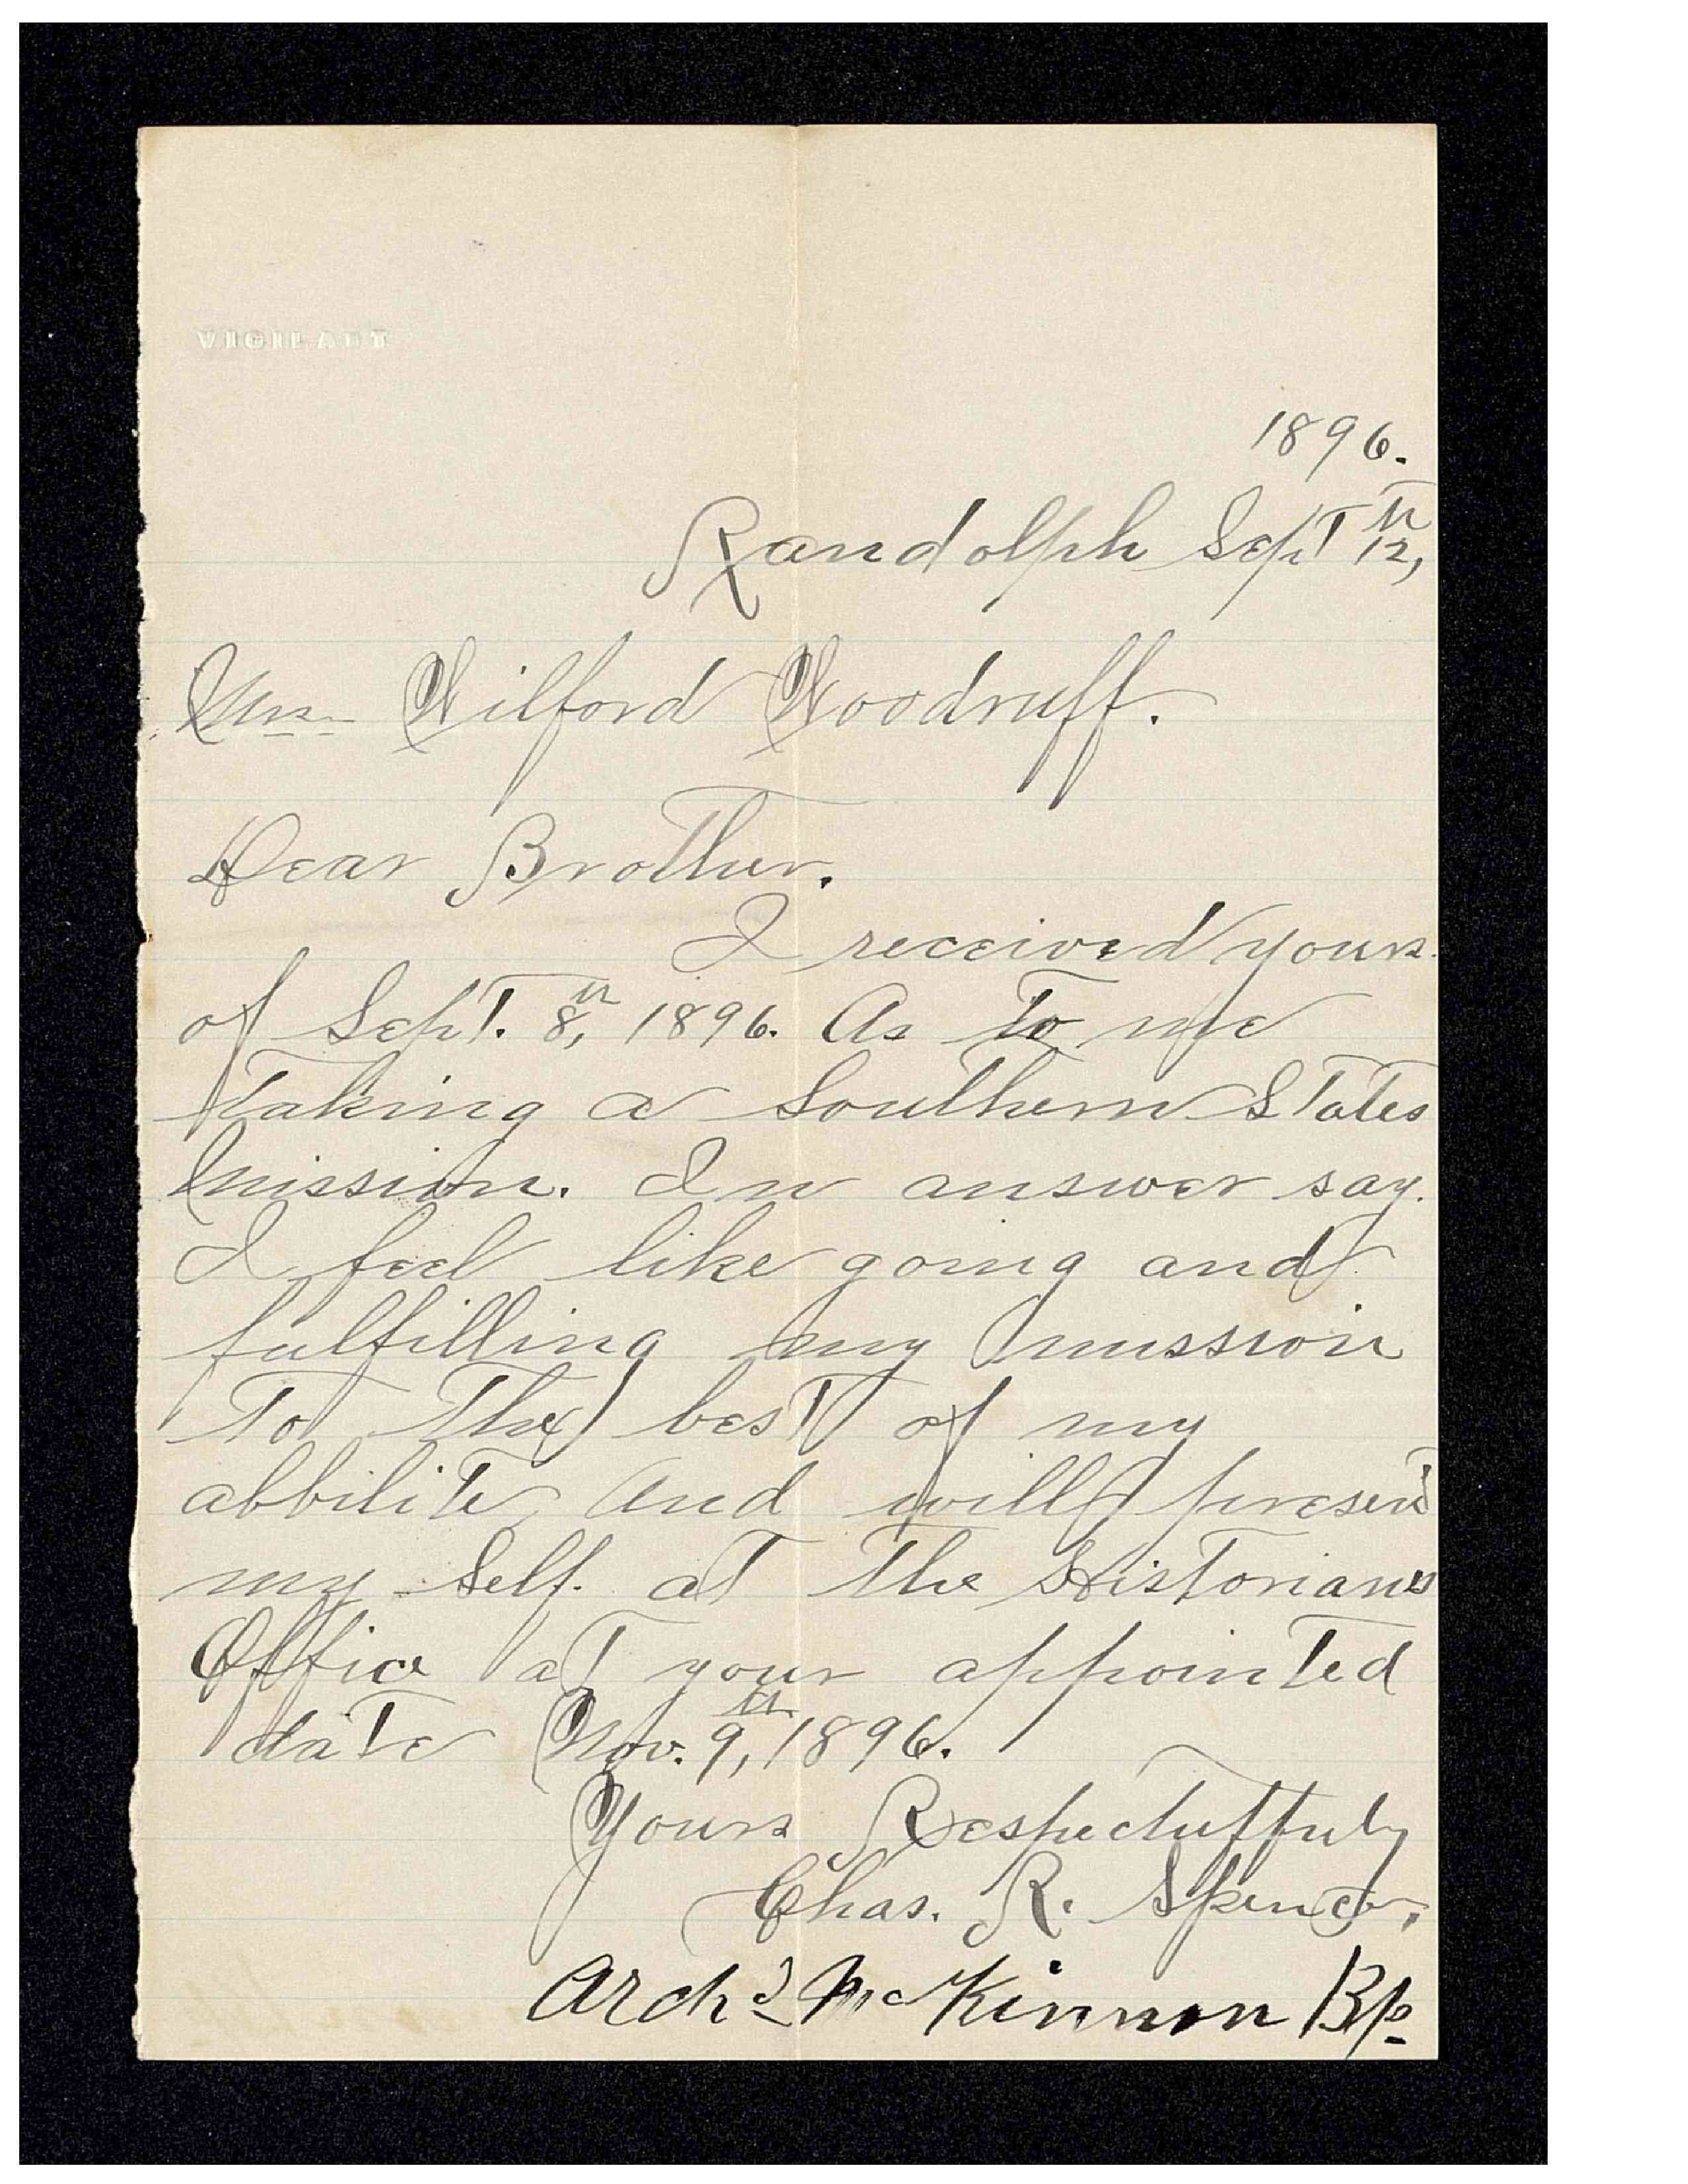 VIGILANT
1896.
Randolph Sept 12th,
Mr. Wilford Woodruff.
Dear Brother.
I received yours
of Sept. 8th, 1896. As to me
taking a Southern States
Mission. In answer say.
I feel like going and
fulfilling my Mission
to the best of my
abbilite, And will present
my Self. at the Historians
Office at your appointed
date Nov. 9th, 1896.
Yours Respectuffuly
Chas. R. Spencer.
Archd McKinnon Bp.